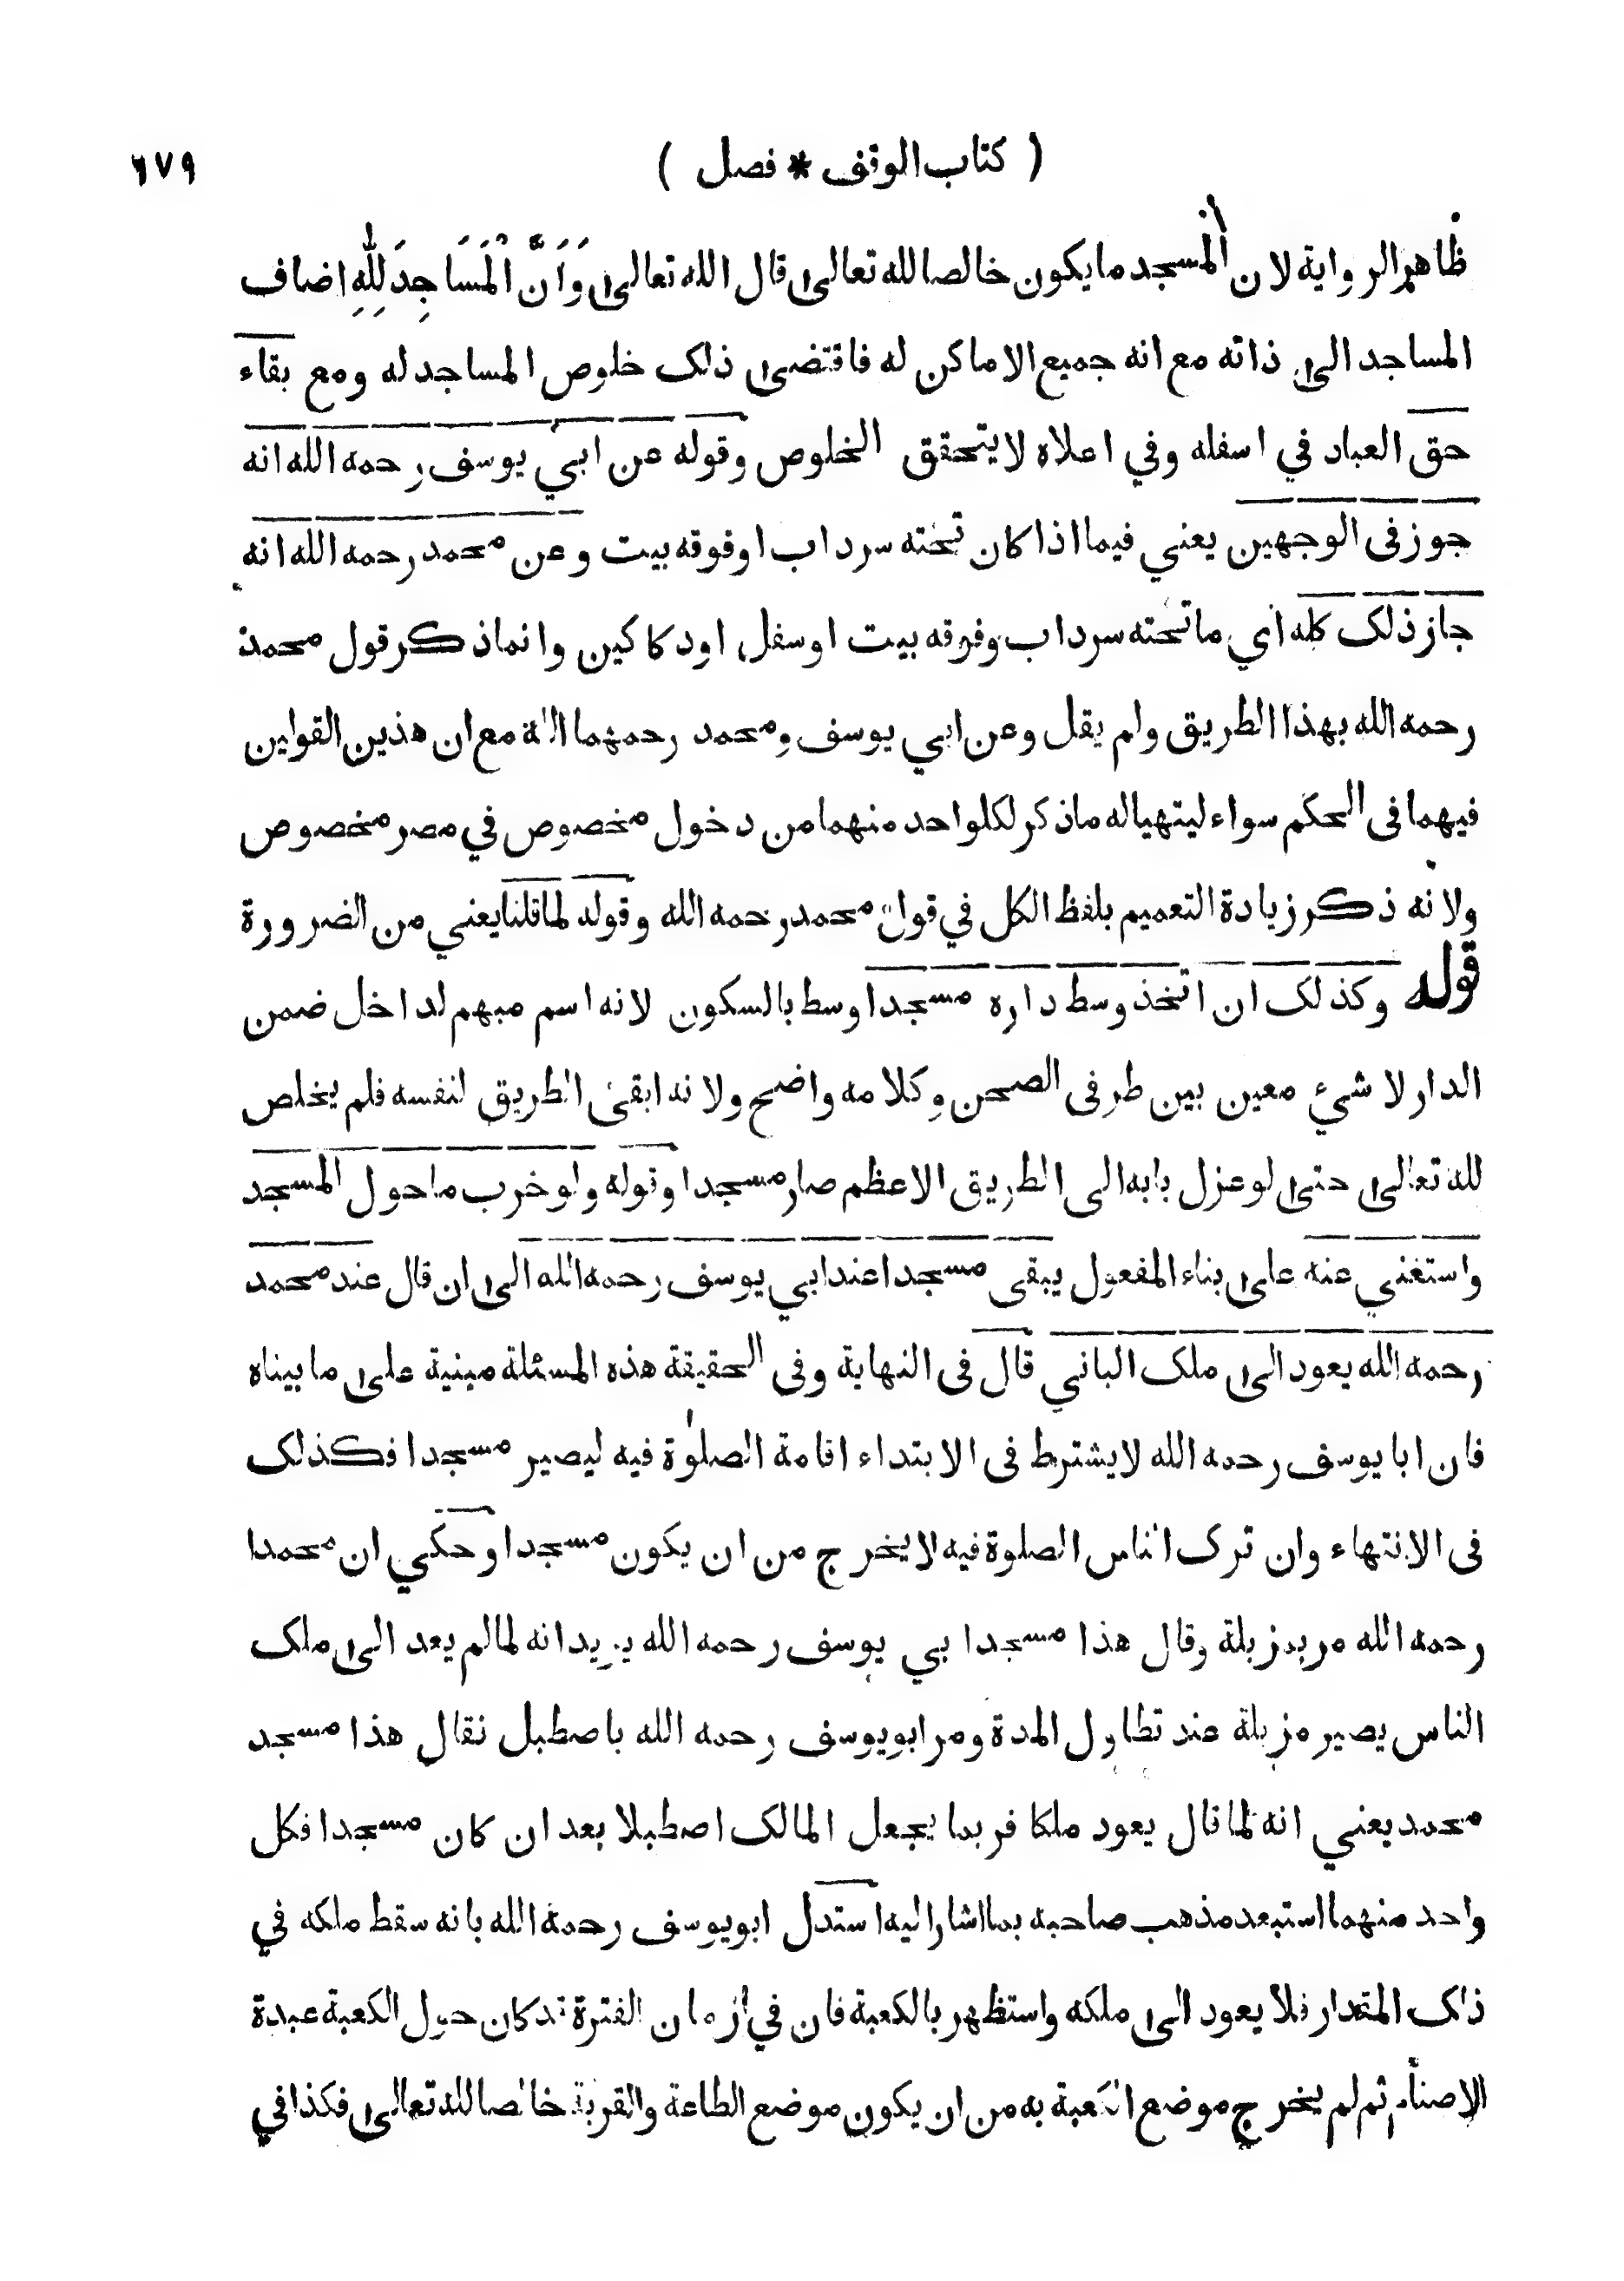 ( كتاب الوقف * فصل ) ٦٧٩
ظاهر الرواية لان المسجد ما يكون خالصا لله تعالى قال الله تعالى وَاَنَّ الْمَسَاجِدَ لِلّٰهِ اضاف
المساجد الى ذاته مع انه جميع الاماكن له فاقتضى ذلك خلوص المساجد له ومع بقاء
حق العباد في اسفله وفي اعلاه لا يتحقق الخلوص وقوله عن ابي يوسف رحمه الله انه
جوز فى الوجهين يعني فيما اذا كان تحته سرداب او فوقه بيت وعن محمد رحمه الله انه
جاز ذلك كله اي ما تحته سرداب وفوقه بيت او سفل او دكاكين وانما ذكر قول محمد
رحمه الله بهذا الطريق ولم يقل وعن ابي يوسف ومحمد رحمهما الله مع ان هذين القولين
فيهما فى الحكم سواء ليتهيا له ما ذكر لكل واحد منهما من دخول مخصوص في مصر مخصوص
ولانه ذكر زيادة التعميم بلفظ الكل في قول محمد رحمه الله وقوله لما قلنا يعني من الضرورة
قوله وكذلك ان اتخذ وسط داره مسجدا وسط بالسكون لانه اسم مبهم لداخل ضمن
الدار لا شيء معين بين طرفى الصحن وكلامه واضح ولانه ابقى الطريق لنفسه فلم يخلص
لله تعالى حتى لو عزل بابه الى الطريق الاعظم صار مسجدا وقوله ولو خرب ما حول المسجد
واستغني عنه على بناء المفعول يبقى مسجدا عند ابي يوسف رحمه الله الى ان قال عند محمد
رحمه الله يعود الى ملك الباني قال فى النهاية وفى الحقيقة هذه المسئلة مبنية على ما بيناه
فان ابا يوسف رحمه الله لا يشترط فى الابتداء اقامة الصلوٰة فيه ليصير مسجدا فكذلك
فى الانتهاء وان ترك الناس الصلوة فيه لا يخرج من ان يكون مسجدا وحكي ان محمدا
رحمه الله مر بمزبلة وقال هذا مسجد ابي يوسف رحمه الله يريد انه لما لم يعد الى ملك
الناس يصير مزبلة عند تطاول المدة ومر ابو يوسف رحمه الله باصطبل فقال هذا مسجد
محمد يعني انه لما قال يعود ملكا فربما يجعل المالك اصطبلا بعد ان كان مسجدا فكل
واحد منهما استبعد مذهب صاحبه بما اشار اليه استدل ابو يوسف رحمه الله بانه سقط ملكه في
ذلك المقدار فلا يعود الى ملكه واستظهر بالكعبة فان في ازمان الفترة قد كان حول الكعبة عبدة
الاصنام ثم لم يخرج موضع الكعبة به من ان يكون موضع الطاعة والقربة خالصا لله تعالى فكذا في